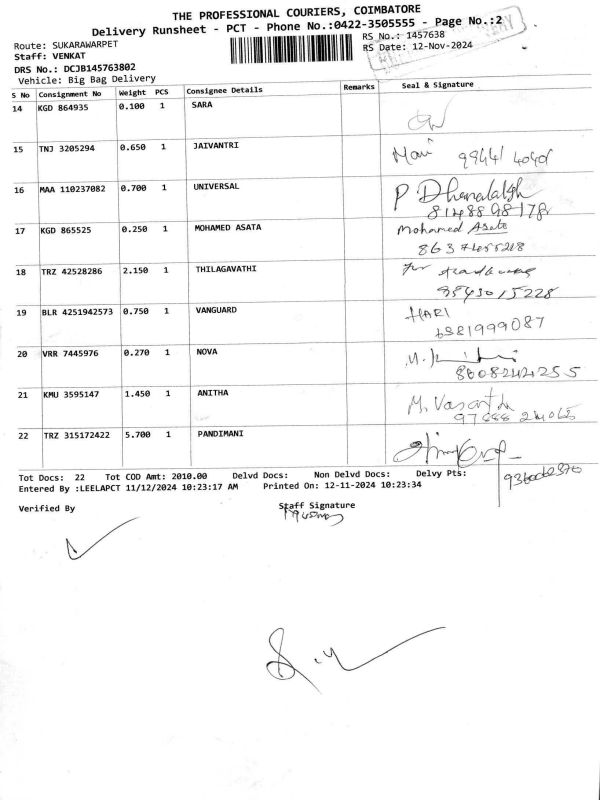 THE PROFESSIONAL COURIERS, COIMBATORE
Delivery Runsheet - PCT - Phone No.:0422-3505555 - Page No.:2
Route: SUKARAWARPET
RS No.: 1457638
Staff: VENKAT
RS Date: 12-Nov-2024
DRS No.: DCJB145763802
Vehicle: Big Bag Delivery
S No Consignment No Weight PCS Consignee Details Remarks Seal & Signature
14 KGD 864935 0.100 1 SARA
15 TNJ 3205294 0.650 1 JAIVANTRI
16 MAA 110237082 0.700 1 UNIVERSAL
17 KGD 865525 0.250 1 MOHAMED ASATA Mohamed Asata
18 TRZ 42528286 2.150 1 THILAGAVATHI
19 BLR 4251942573 0.750 1 VANGUARD HARI
6381999087
20 VRR 7445976 0.270 1 NOVA
8608242255
21 KMU 3595147 1.450 1 ANITHA
22 TRZ 315172422 5.700 1 PANDIMANI
Tot Docs: 22 Tot COD Amt: 2010.00 Delvd Docs: Non Delvd Docs: Delvy Pts:
Entered By :LEELAPCT 11/12/2024 10:23:17 AM Printed On: 12-11-2024 10:23:34
Verified By Staff Signature